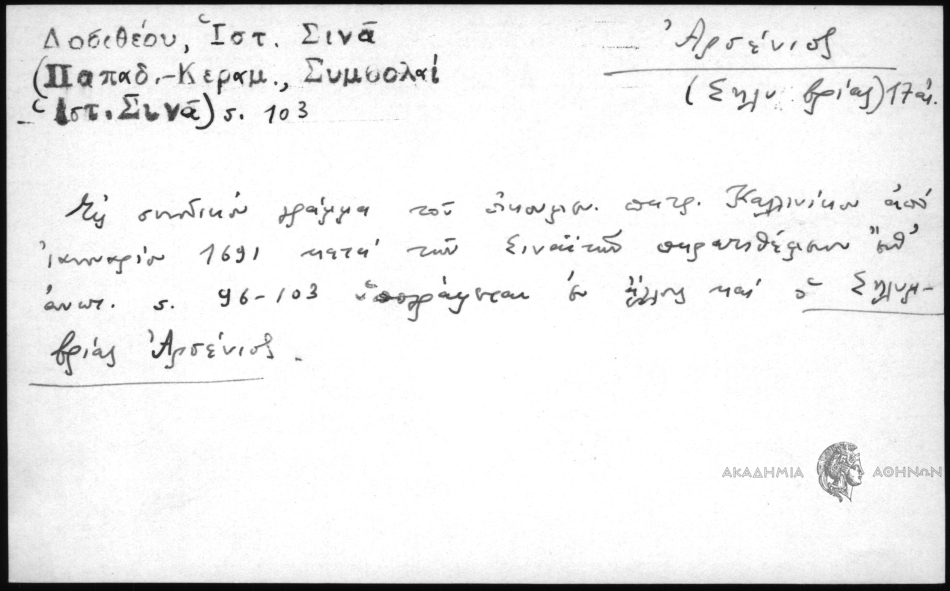 Δοσιθέου, Ἱστ. Σινᾶ
(Παπαδ.-Κεραμ., Συμβολαί
Ἱστ. Σινᾶ) σ. 103
Ἀρσένιος
(Σηλυβρίας) 17 αἰ.
Εἰς συνοδικὸν γράμμα τοῦ οἰκουμεν. πατρ. Καλλινίκου ἀπὸ
Ἰανουαρίου 1691 κατὰ τῶν Σιναϊτῶν παρατιθέμενον
ἀνωτ. σ. 96-103 ὑπογράφεται ἐν ἄλλοις καὶ ὁ Σηλυμ-
βρίας Ἀρσένιος.
ΑΚΑΔΗΜΙΑ ΑΘΗΝΩΝ